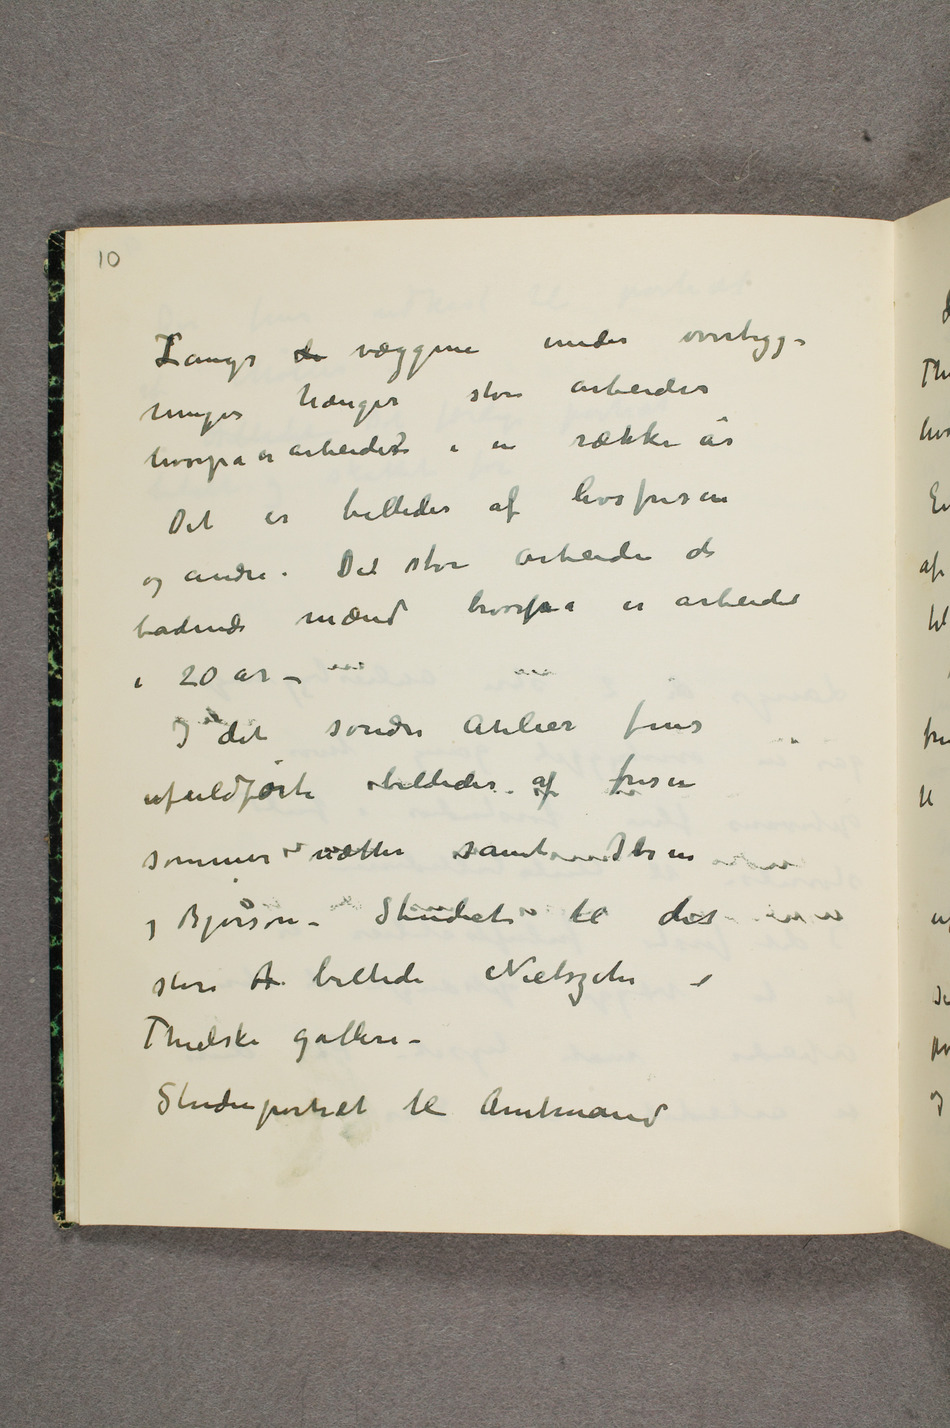 10
Langs de væggene under overbygg-
ninger hænger store arbeider
hvorpå er arbeidet i en række år
Det er billeder af livsfrisen
og andre. Det store arbeide de
badende mænd hvorpaa er arbeidet
i 20 år –
I det søndre Atelier fins
ufuldførte billeder af frisen
sommernætter samt Ibsen
og Bjørson – Studiet til det
store A billede Nietszche i
Thielske galleri –
Studieportræt til Amtmand